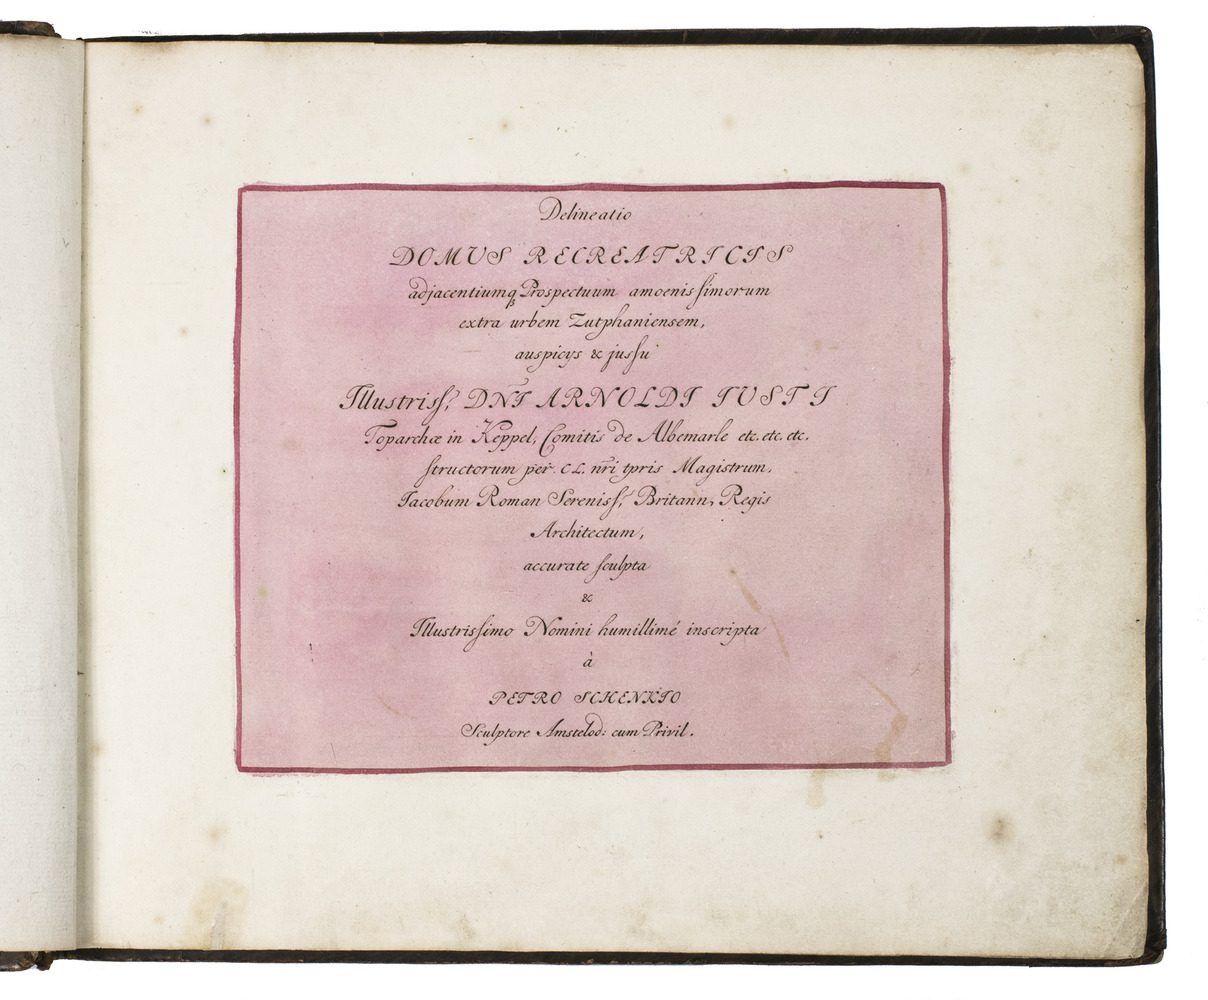 Delineatio
DOMUS RECREATRICIS
adjacentiumq; Prospectuum amoenissimorum
extra urbem Zutphaniensem,
auspicys & jussu
Illustriss: DNI ARNOLDI IUSTI
Toparchæ in Keppel, Comitis de Albemarle etc. etc. etc.
structorum per C L. nri tpris Magistrum,
Iacobum Roman Sereniss: Britann, Regis
Architectum,
accurate sculpta
&
Illustrissimo Nomini humillimé inscripta
à
PETRO SCHENKIO
Sculptore Amstelod: cum Privil.